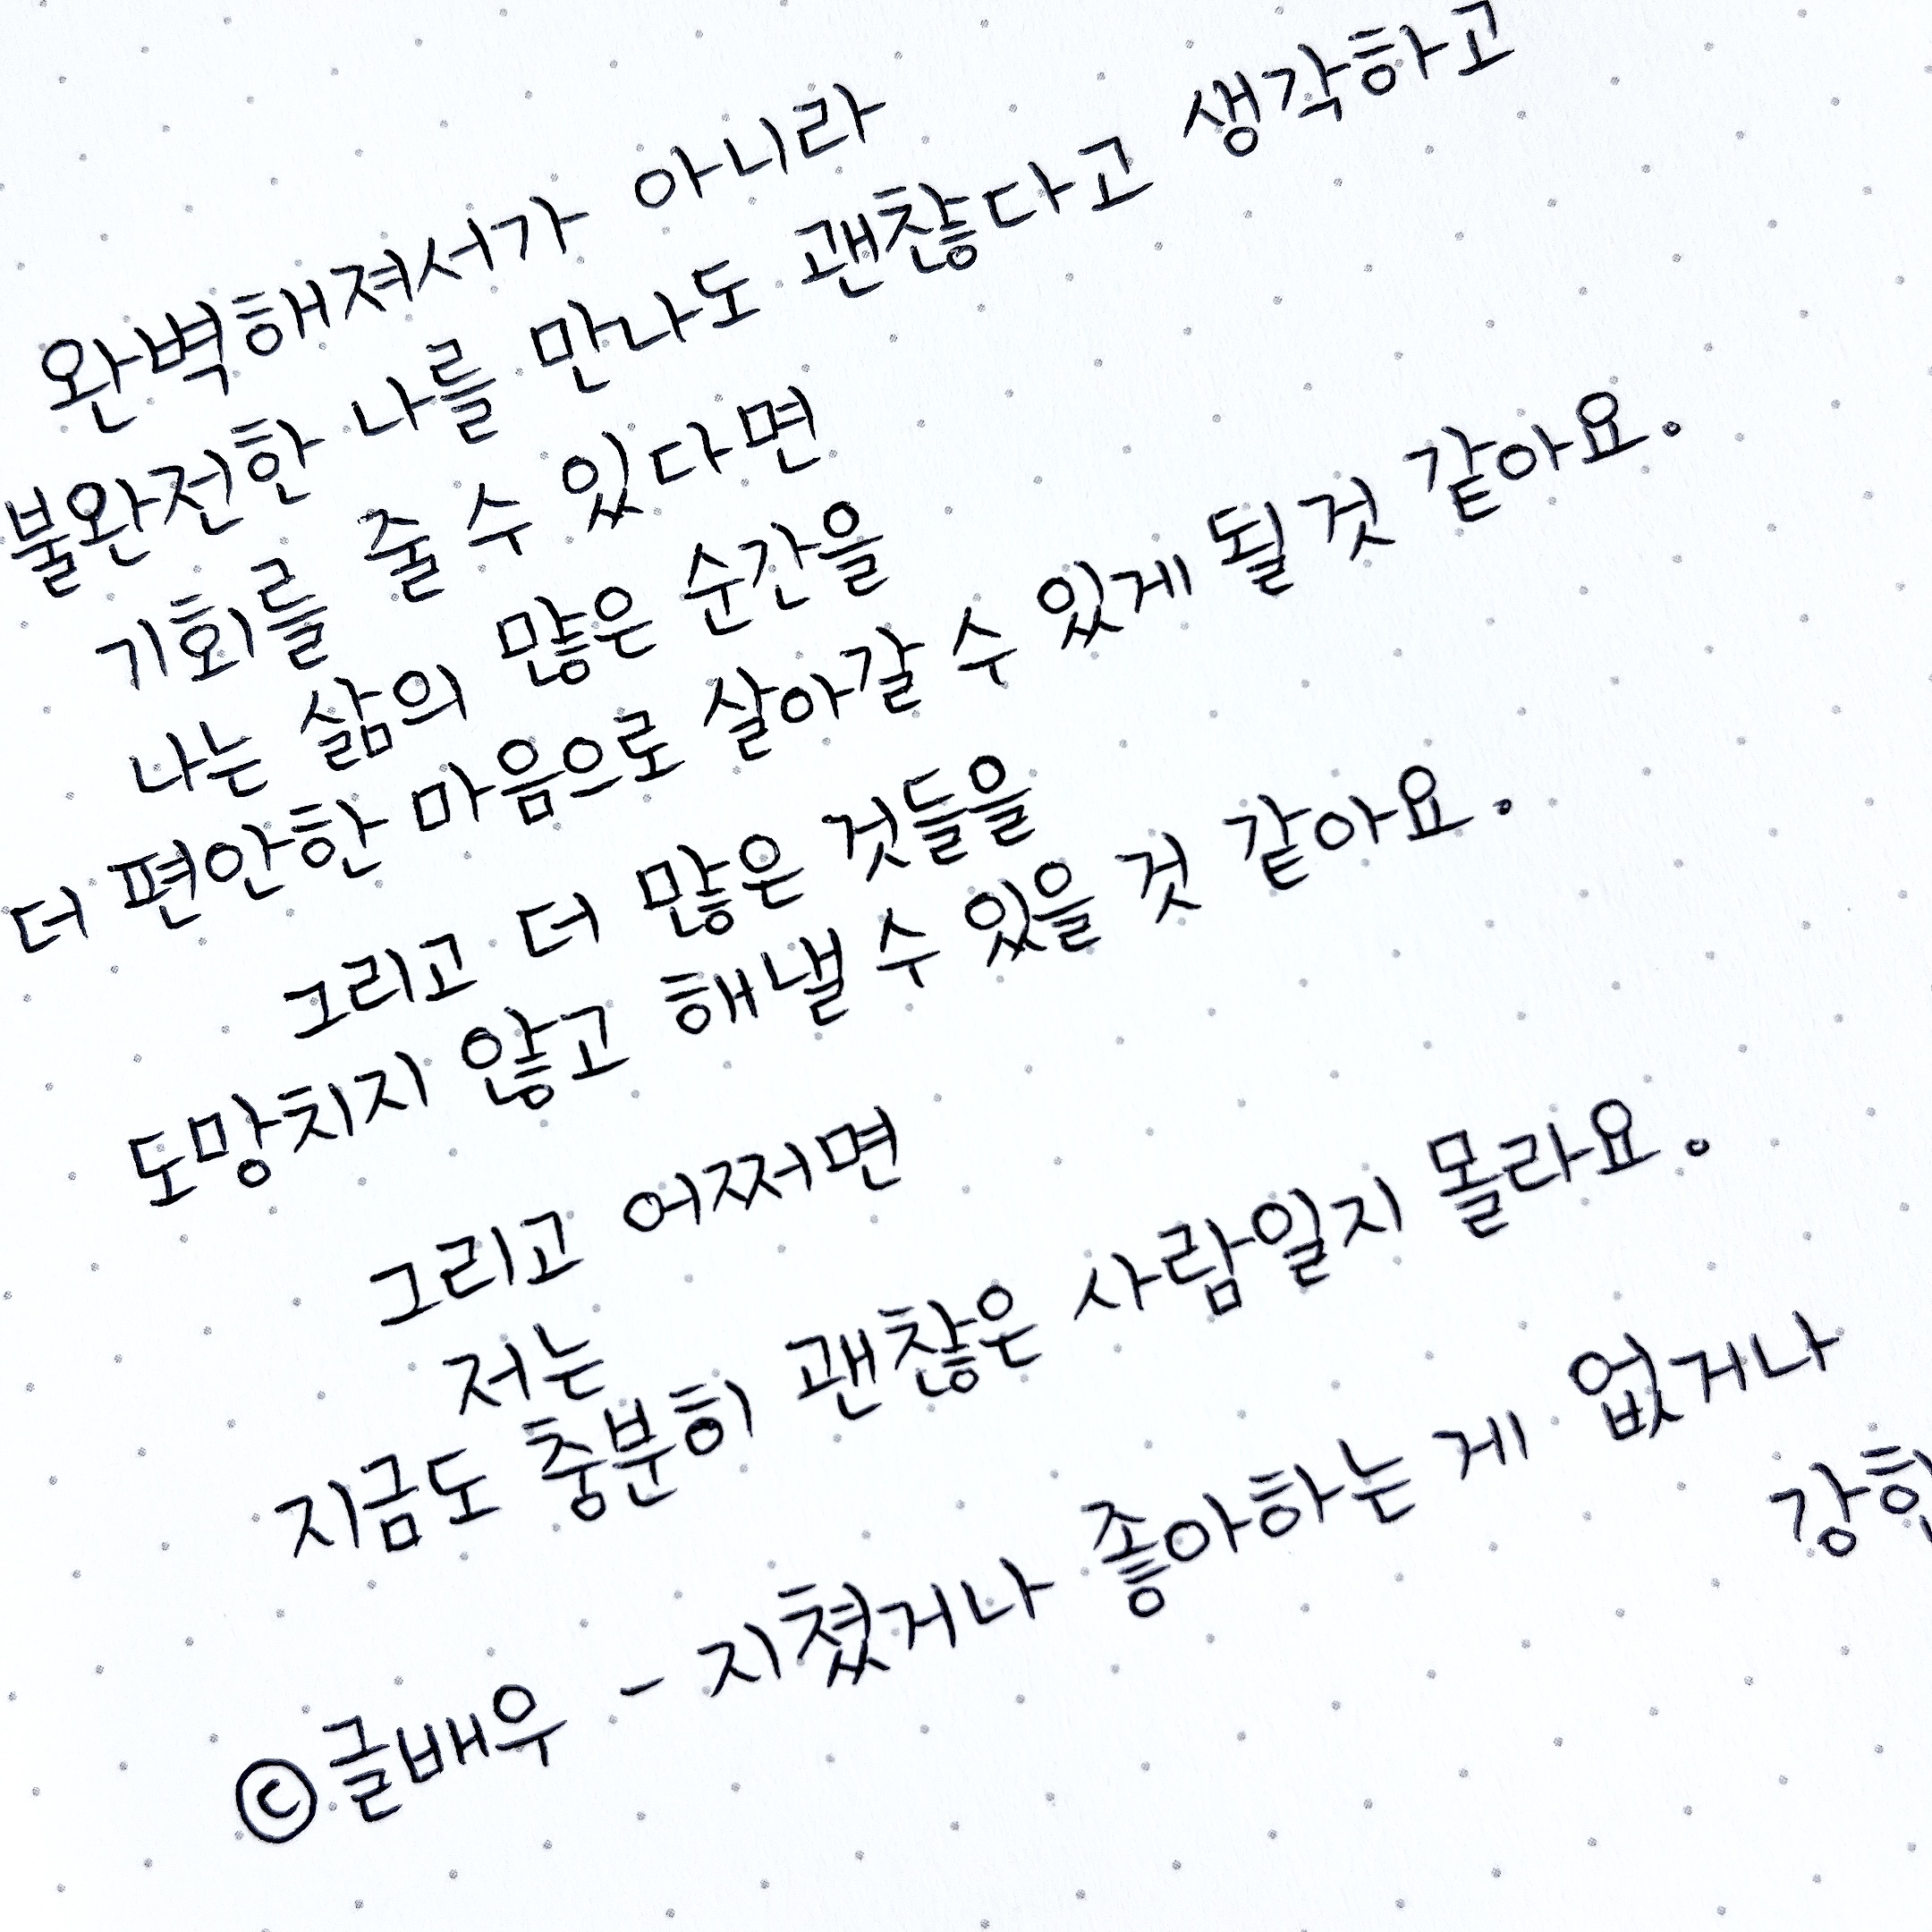 완벽해져서가 아니라
불완전한 나를 만나도 괜찮다고 생각하고
기회를 줄 수 있다면
나는 삶의 많은 순간을
더 편안한 마음으로 살아갈 수 있게 될것 같아요.
그리고 더 많은 것들을
도망치지 않고 해낼 수 있을 것 같아요.
그리고 어쩌면
저는
지금도 충분히 괜찮은 사람일지 몰라요.
ⓒ글배우 - 지쳤거나 좋아하는 게 없거나